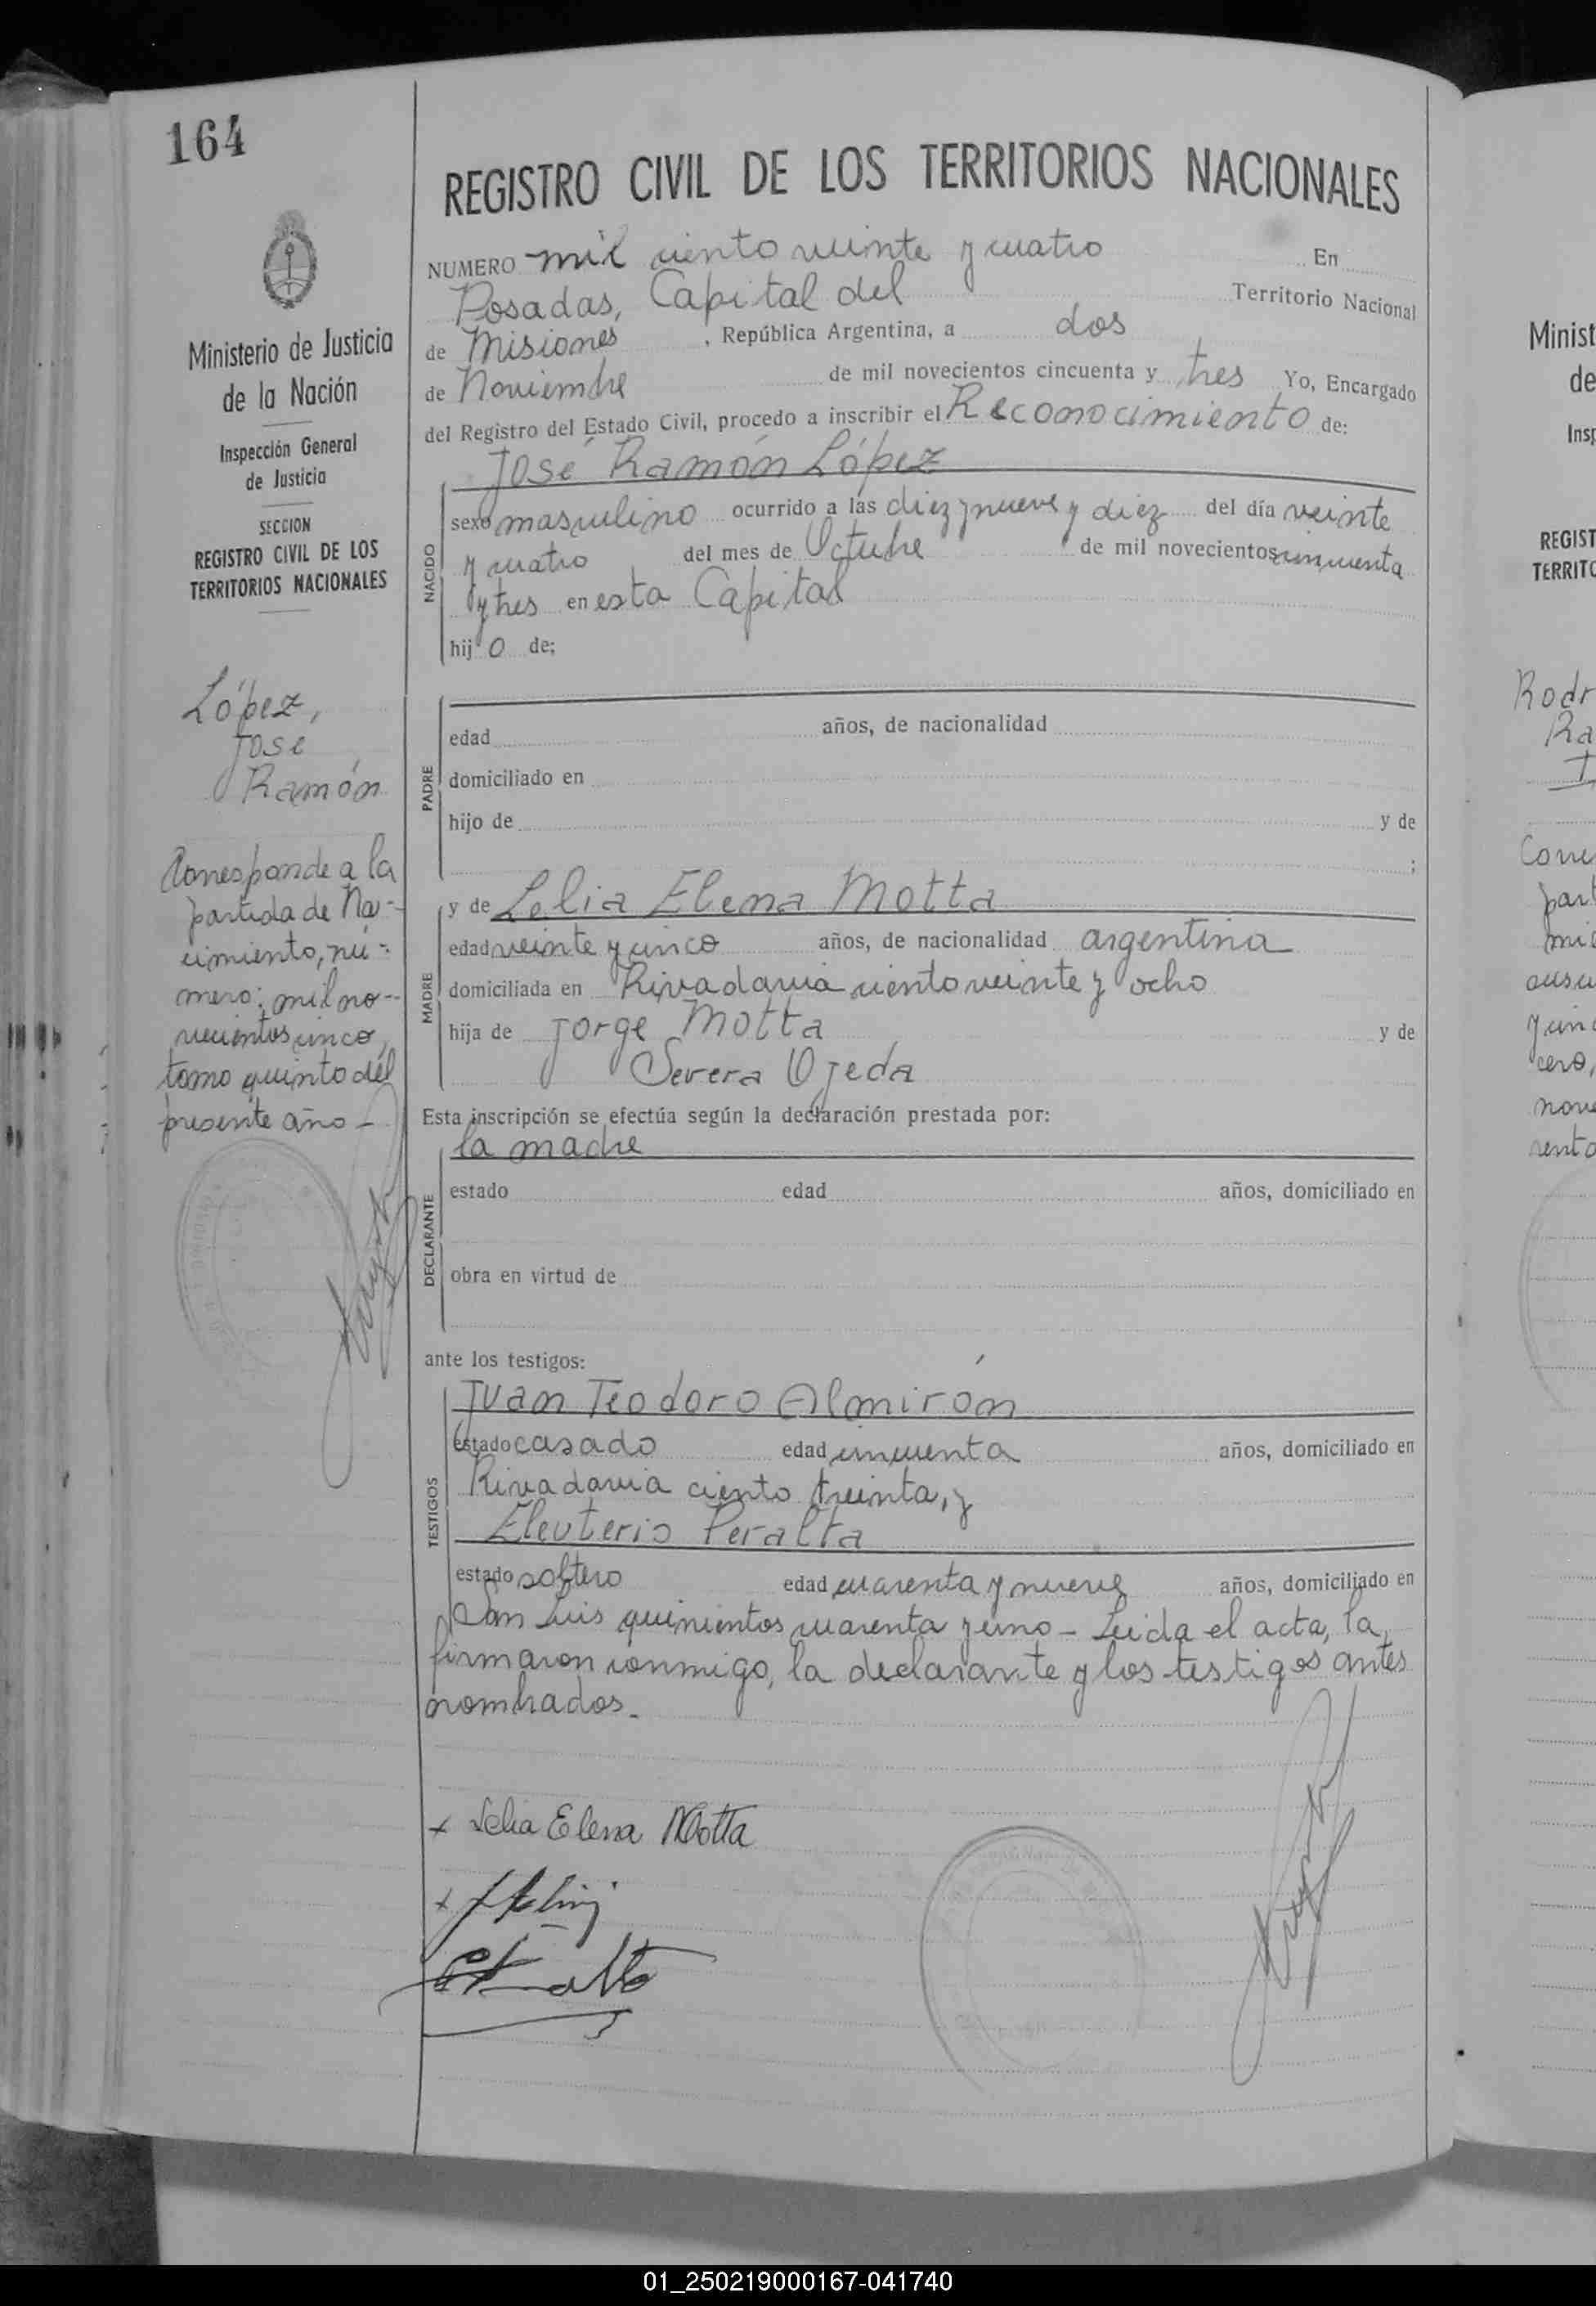 164
REGISTRO CIVIL DE LOS TERRITORIOS NACIONALES
NUMERO mil ciento veinte y cuatro En
Posadas, Capital del Territorio Nacional
de Misiones, República Argentina, a dos
de Noviembre de mil novecientos cincuenta y tres Yo, Encargado
del Registro del Estado Civil, procedo a inscribir el Reconocimiento de:
José Ramón López
NACIDO
sexo masculino ocurrido a las diez y nueve y diez del día veinte
y cuatro del mes de Octubre de mil novecientos cincuenta
y tres en esta Capital
hijo de;
PADRE
edad años, de nacionalidad
domiciliado en
hijo de y de
;
MADRE
y de Lelia Elena Motta
edad veinte y cinco años, de nacionalidad argentina
domiciliada en Rivadavia ciento veinte y ocho
hija de Jorge Motta y de
Severa Ojeda
Esta inscripción se efectúa según la declaración prestada por:
la madre
DECLARANTE
estado edad años, domiciliado en
obra en virtud de
ante los testigos:
TESTIGOS
Juan Teodoro Almirón
estado casado edad cincuenta años, domiciliado en
Rivadavia ciento treinta, y
Eleuterio Peralta
estado soltero edad cuarenta y nueve años, domiciliado en
San Luis quinientos cuarenta y uno - Leida el acta, la
firmaron conmigo, la declarante y los testigos antes
nombrados.
x Lelia Elena Motta
Ministerio de Justicia
de la Nación
Inspección General
de Justicia
SECCION
REGISTRO CIVIL DE LOS
TERRITORIOS NACIONALES
López,
José
Ramón
Corresponde a la
partida de Na-
cimiento, nú-
mero: mil no-
vecientos cinco,
tomo quinto del
presente año -
Minist
de
Insp
REGIST
TERRITO
Rodr
Ra
part
01_250219000167-041740